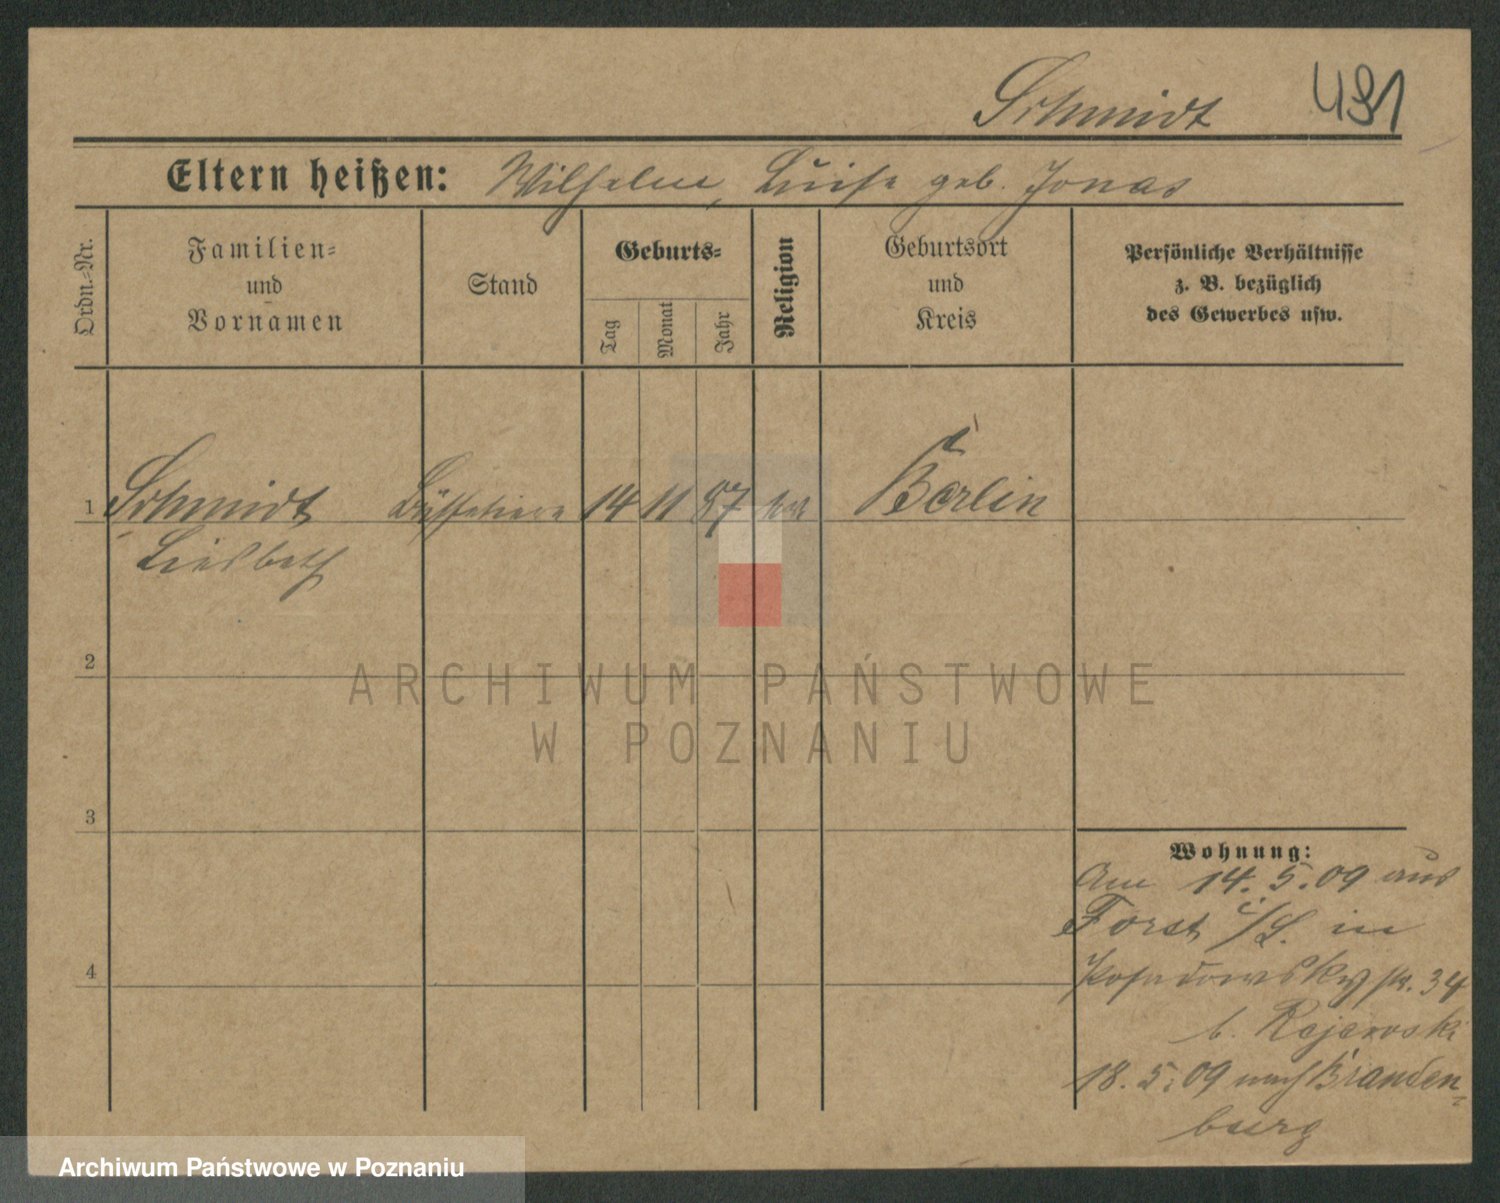 Schmidt 491
Eltern heißen: Wilhelm, Luise geb. Jonas
Ordn.-Nr.
Familien-
und
Vornamen
Stand
Geburts-
Tag
Monat
Jahr
Religion
Geburtsort
und
Kreis
Persönliche Verhältnisse
z. B. bezüglich
des Gewerbes usw.
1 Schmidt 14 11 87 Berlin
Liesbeth
2
3
4
Wohnung:
Am 14. 5. 09 aus
Forst i/L. in
Posadowskystr. 34
b. Rajewski
18. 5. 09 nach Branden-
burg
ARCHIWUM PAŃSTWOWE
W POZNANIU
Archiwum Państwowe w Poznaniu